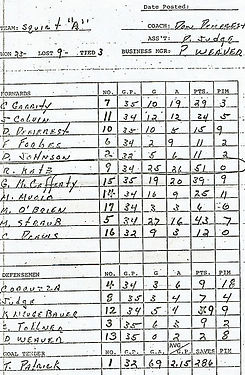 Date Posted:
TEAM: Squirt "A" COACH: Don Penerest
ASS'T: P. Judge
WON 23- LOST 9- TIED 3 BUSINESS MGR: P. WEAVER
FORWARDS NO. G.P. G A PTS. PIM
C GARRITY 7 35 10 19 29 3
J COLVIN 11 34 12 12 24 5
D 10 35 10 5 15 9
F FOOKES 6 34 2 9 11 2
D. JOHNSON 2 32 5 6 11 2
R. KATZ 9 34 25 26 51 0
G. McCafferty 15 35 19 20 39 9
M. 14 34 16 9 25 11
M. O'BRIEN 17 34 3 3 6 6
M. STRAUB 5 34 27 16 43 7
C 16 32 9 3 12 0
DEFENSEMEN NO. G.P. G A PTS. PIM
4 34 3 6 9 18
Judge 8 35 3 4 7 4
12 34 5 4 9
S. Tollner 3 35 6 3 9 2
D WEAVER 13 35 0 2 2 8
GOAL TENDER NO. G.P. G AVG. SAVES PIM
T. PATRICK 1 32 69 2.15 286